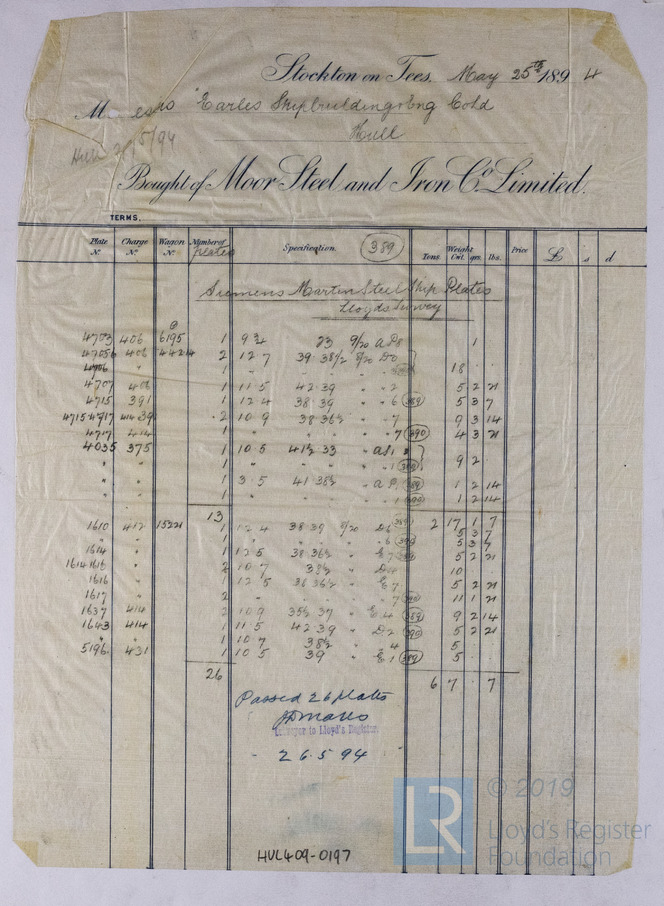 Stockton on Tees, May 25th 1894
Messrs Earles Shipbuilding & Eng Co Ld
Hull
Hull 5/94
Bought of Moor Steel and Iron Co. Limited.
TERMS.
Plate No. Charge No. Wagon No. Number of plates Specification. 389 Tons. Weight Cwt. qrs. lbs. Price £ s d
Siemens Martin Steel Ship Plates
Lloyds Survey
4703 406 6195 1 9 3/4 23 9/20 1
4705 406 2 12 7 39 38 1/2 8/20 Do
4706 " 1 18
4707 406 1 11 5 42 39 " " 2 5 2 21
4715 391 1 12 4 38 39 " " 6 389 5 3 7
4715 4717 414 39 2 10 9 38 36 1/2 " " 7 9 3 14
4717 414 1 " " " 7 390 4 3 21
4035 375 1 10 5 41 1/2 33 "
" " 1 " " " 9 2
" " 1 3 5 41 38 1/2 " 1 2 14
" " 1 " " " 1 390 1 2 14
13 2 17 1 7
1610 412 15221 1 12 4 38 39 8/20 D6 389 5 3 7
" " 1 " " " 6 390 5 3 7
1614 " 1 12 5 38 36 1/2 " E7 5 2 21
1614 1616 " 2 10 7 38 1/2 " 10
1616 " 1 12 5 38 36 1/2 " E7 5 2 21
1617 " 2 " " 7 390 11 1 21
1637 414 2 10 9 35 1/2 37 " E4 389 9 2 14
1643 414 1 11 5 42 39 " D2 390 5 2 21
" " 1 10 7 38 1/2 " 4 5
5196 431 1 10 5 39 " E1 389 5
26 6 7 7
Passed 26 plates
Surveyor to Lloyd's Register
26.5.94
LR © 2019
Lloyd's Register
Foundation
HUL409-0197